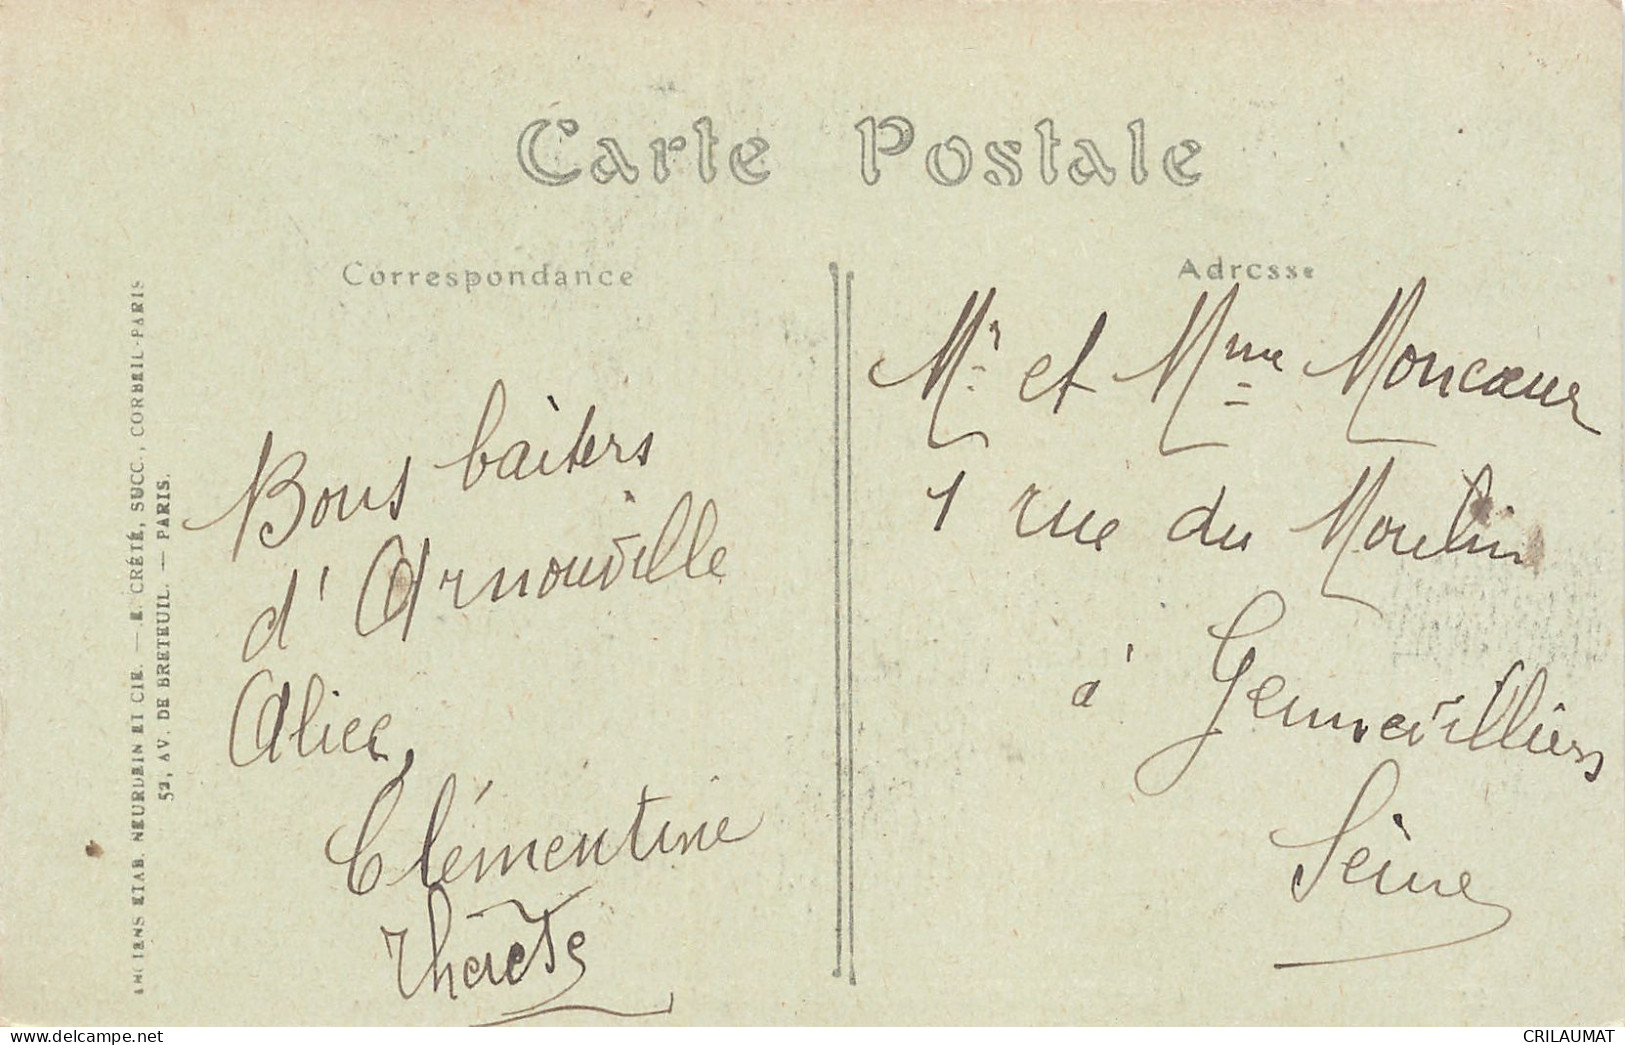 Carte Postale
Correspondance
Adresse
Bons baisers
d'Arnouville
Alice,
Clémentine
Thérèse
Mr et Mme Moncœur
1 rue du Moulin
à Gennevilliers
Seine
ANCIENS ETAB. NEURDEIN ET CIE. — E. CRÉTÉ, SUCC., CORBEIL-PARIS
52, AV. DE BRETEUIL. — PARIS.
www.delcampe.net
CRILAUMAT